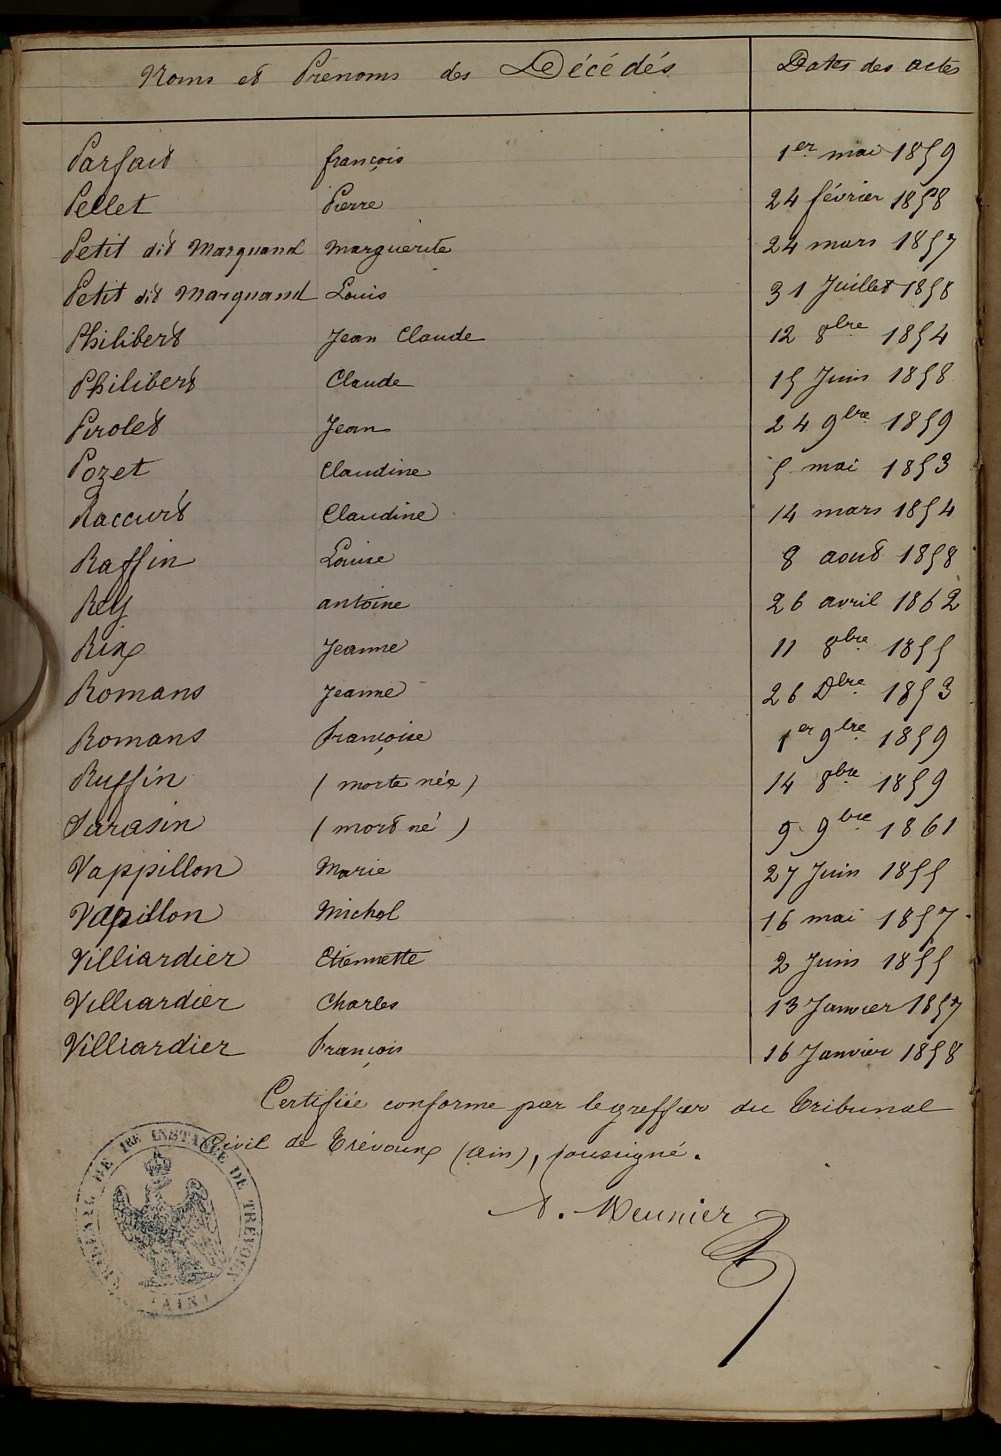 Noms et Prénoms des Décédés Dates des actes
Parfait françois 1er mai 1859
Pellet Pierre 24 février 1858
Petit dit Marquand Marguerite 24 mars 1857
Petit dit Marquand Louis 31 Juillet 1858
Philibert Jean Claude 12 8bre 1854
Philibert Claude 15 Juin 1858
Pirolet Jean 24 9bre 1859
Pozet Claudine 5 mai 1853
Raccurt Claudine 14 mars 1854
Raffin Louise 8 aout 1858
Rey antoine 26 avril 1862
Rix Jeanne 11 8bre 1855
Romans Jeanne 26 Dbre 1853
Romans françoise 1er 9bre 1859
Ruffin (morte née) 14 8bre 1859
Sarasin (mort né) 9 9bre 1861
Vappillon Marie 27 Juin 1855
Vapillon Michel 16 mai 1857
Villiardier Etiennette 2 Juin 1855
Villiardier Charles 13 Janvier 1857
Villiardier françois 16 Janvier 1858
Certifiée conforme par le greffier du tribunal
Civil de Trévoux (ain), soussigné.
Meunier
TRIBUNAL DE 1RE INSTANCE DE TREVOUX
(AIN)